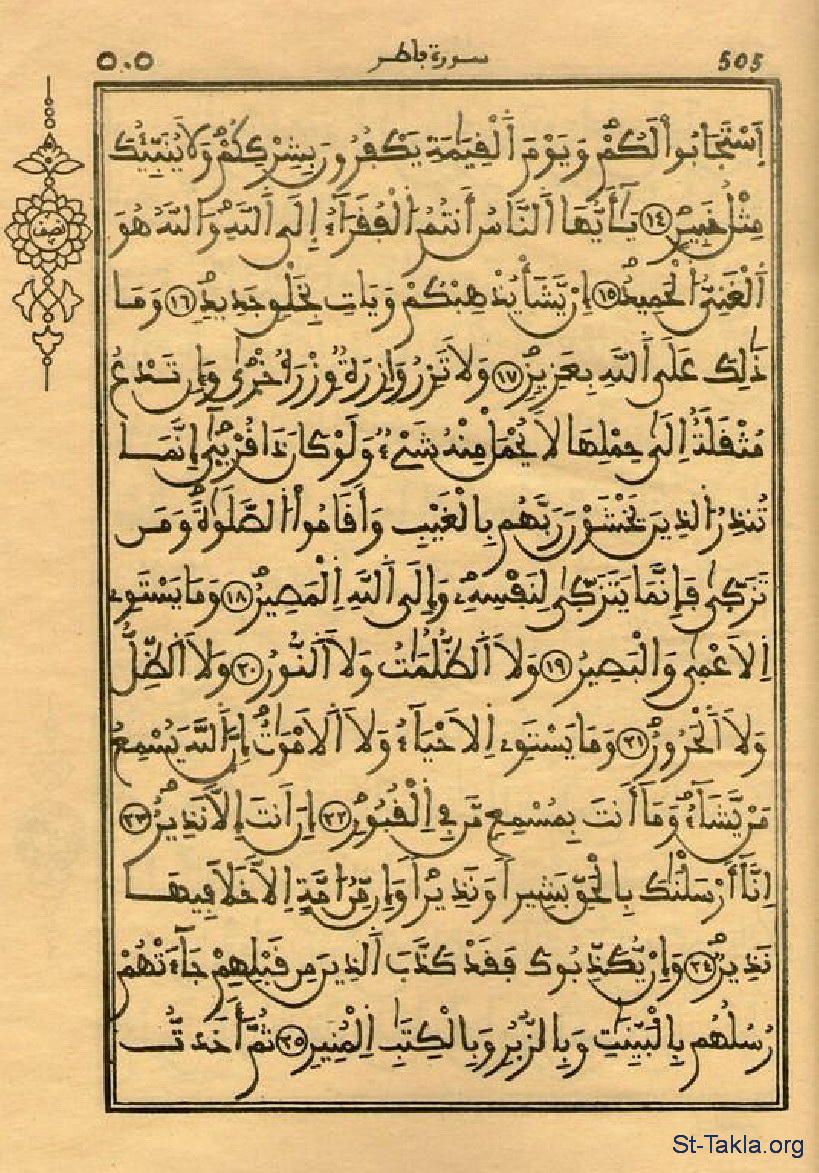 505 سورة فاطر ٥٠٥
اَ۪سْتَجَابُواْ لَكُمْ وَيَوْمَ اَ۬لْقِيَٰمَةِ يَكْفُرُونَ بِشِرْكِكُمْ وَلَا يُنَبِّئُكَ
مِثْلُ خَبِيرٍ ١٤ يَٰأَيُّهَا اَ۬لنَّاسُ أَنتُمُ اُ۬لْفُقَرَآءُ اِلَى اَ۬للَّهِ وَاللَّهُ هُوَ
اَ۬لْغَنِيُّ اُ۬لْحَمِيدُ ١٥ إِنْ يَّشَأْ يُذْهِبْكُمْ وَيَاتِ بِخَلْقٍ جَدِيدٍ ١٦ وَمَا
ذَٰلِكَ عَلَى اَ۬للَّهِ بِعَزِيزٍ ١٧ وَلَا تَزِرُ وَازِرَةٌ وِزْرَ أُخْر۪ىٰ وَإِن تَدْعُ
مُثْقَلَةٌ اِلَىٰ حِمْلِهَا لَا يُحْمَلْ مِنْهُ شَےْءٌ وَلَوْ كَانَ ذَا قُرْب۪ىٰٓ إِنَّمَا
تُنذِرُ اُ۬لذِينَ يَخْشَوْنَ رَبَّهُم بِالْغَيْبِ وَأَقَامُواْ اُ۬لصَّلَوٰةَ وَمَن
تَزَكّ۪ىٰ فَإِنَّمَا يَتَزَكّ۪ىٰ لِنَفْسِهِۦ وَإِلَى اَ۬للَّهِ اِ۬لْمَصِيرُ ١٨ وَمَا يَسْتَوِے
اِ۬لَاعْم۪ىٰ وَالْبَصِيرُ ١٩ وَلَا اَ۬لظُّلُمَٰتُ وَلَا اَ۬لنُّورُ ٢٠ وَلَا اَ۬لظِّلُّ
وَلَا اَ۬لْحَرُورُ ٢١ وَمَا يَسْتَوِے اِ۬لَاحْيَآءُ وَلَا اَ۬لَامْوَٰتُ إِنَّ اَ۬للَّهَ يُسْمِعُ
مَنْ يَّشَآءُ وَمَآ أَنتَ بِمُسْمِعٍ مَّن فِے اِ۬لْقُبُورِ ٢٢ إِنَ اَنتَ إِلَّا نَذِيرٌ ٢٣
اِنَّآ أَرْسَلْنَٰكَ بِالْحَقِّ بَشِيراً وَنَذِيراً وَإِن مِّنُ ا۟مَّةٍ اِلَّا خَلَا فِيهَا
نَذِيرٌ ٢٤ وَإِنْ يُّكَذِّبُوكَ فَقَدْ كَذَّبَ اَ۬لذِينَ مِن قَبْلِهِمْ جَآءَتْهُمْ
رُسُلُهُم بِالْبَيِّنَٰتِ وَبِالزُّبُرِ وَبِالْكِتَٰبِ اِ۬لْمُنِيرِ ٢٥ ثُمَّ أَخَذتُّ
نصف
St-Takla.org